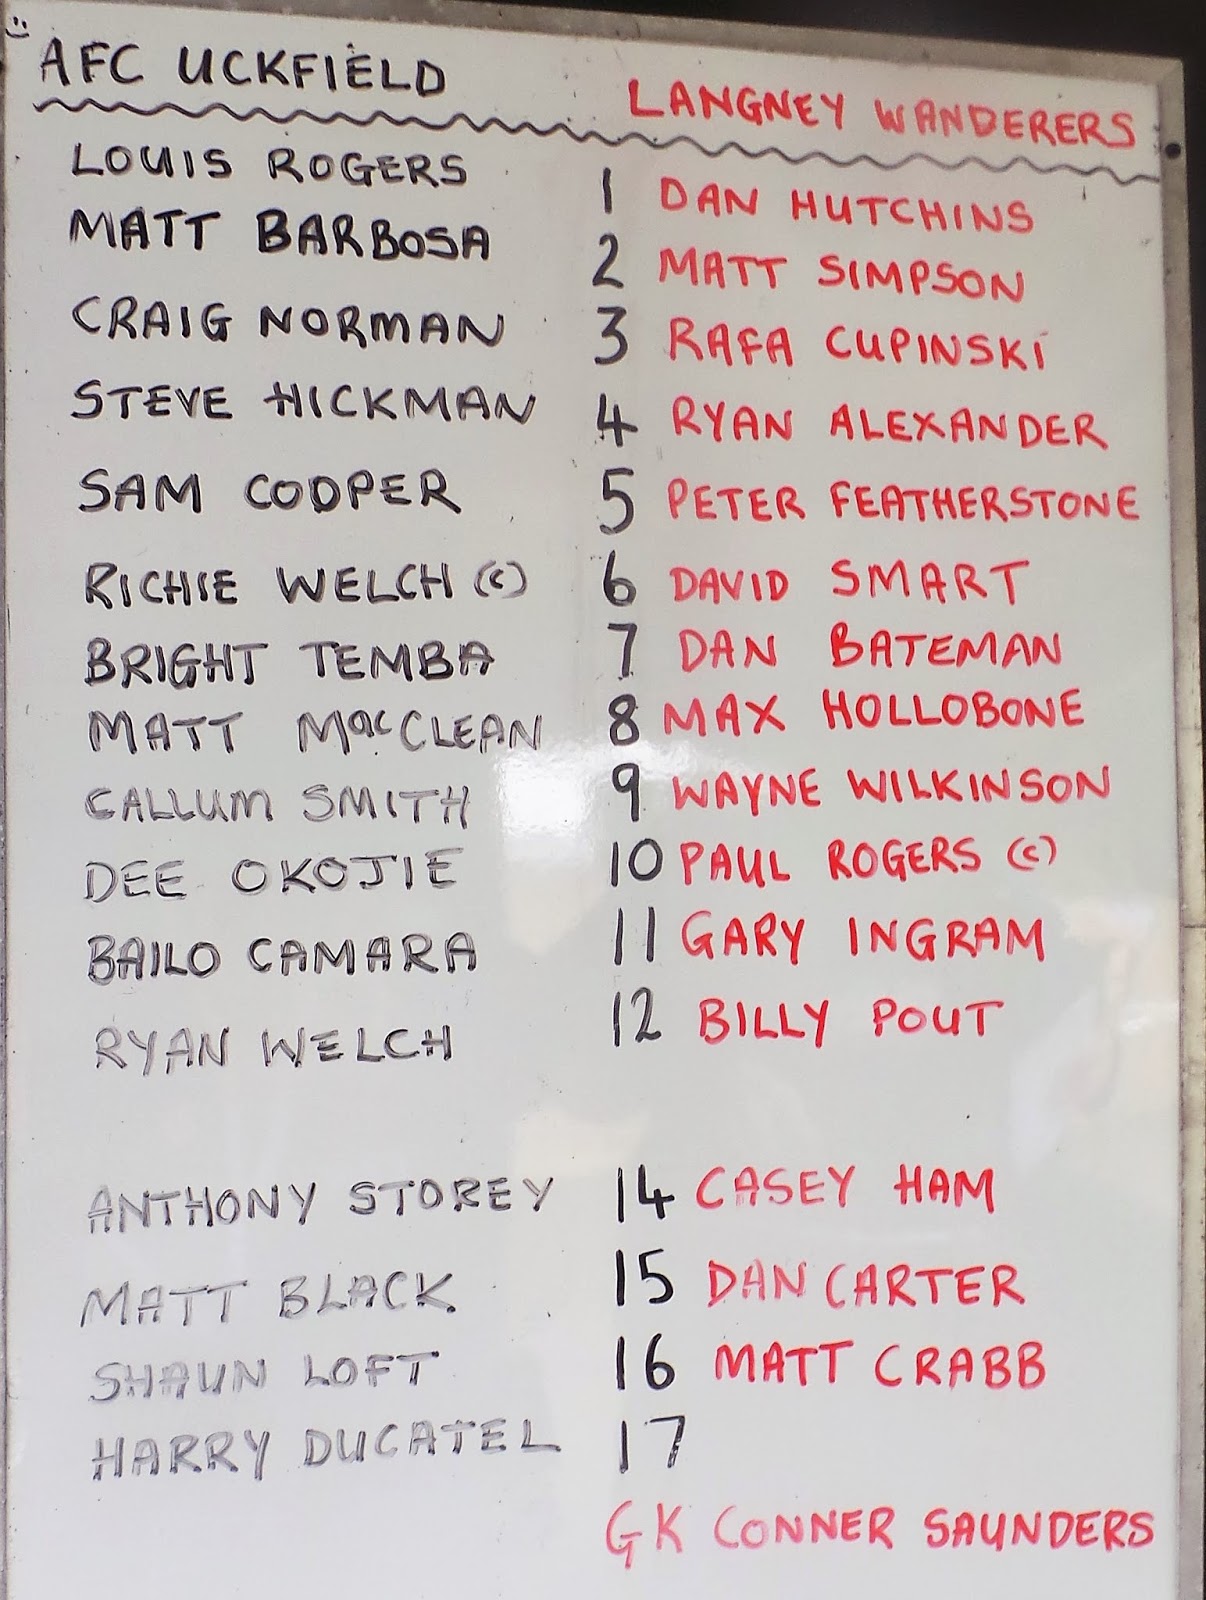 AFC UCKFIELD LANGNEY WANDERERS
LOUIS ROGERS 1 DAN HUTCHINS
MATT BARBOSA 2 MATT SIMPSON
CRAIG NORMAN 3 RAFA CUPINSKI
STEVE HICKMAN 4 RYAN ALEXANDER
SAM COOPER 5 PETER FEATHERSTONE
RICHIE WELCH (C) 6 DAVID SMART
BRIGHT TEMBA 7 DAN BATEMAN
MATT MacCLEAN 8 MAX HOLLOBONE
CALLUM SMITH 9 WAYNE WILKINSON
DEE OKOJIE 10 PAUL ROGERS (C)
BAILO CAMARA 11 GARY INGRAM
RYAN WELCH 12 BILLY POUT
ANTHONY STOREY 14 CASEY HAM
MATT BLACK 15 DAN CARTER
SHAUN LOFT 16 MATT CRABB
HARRY DUCATEL 17
GK CONNER SAUNDERS